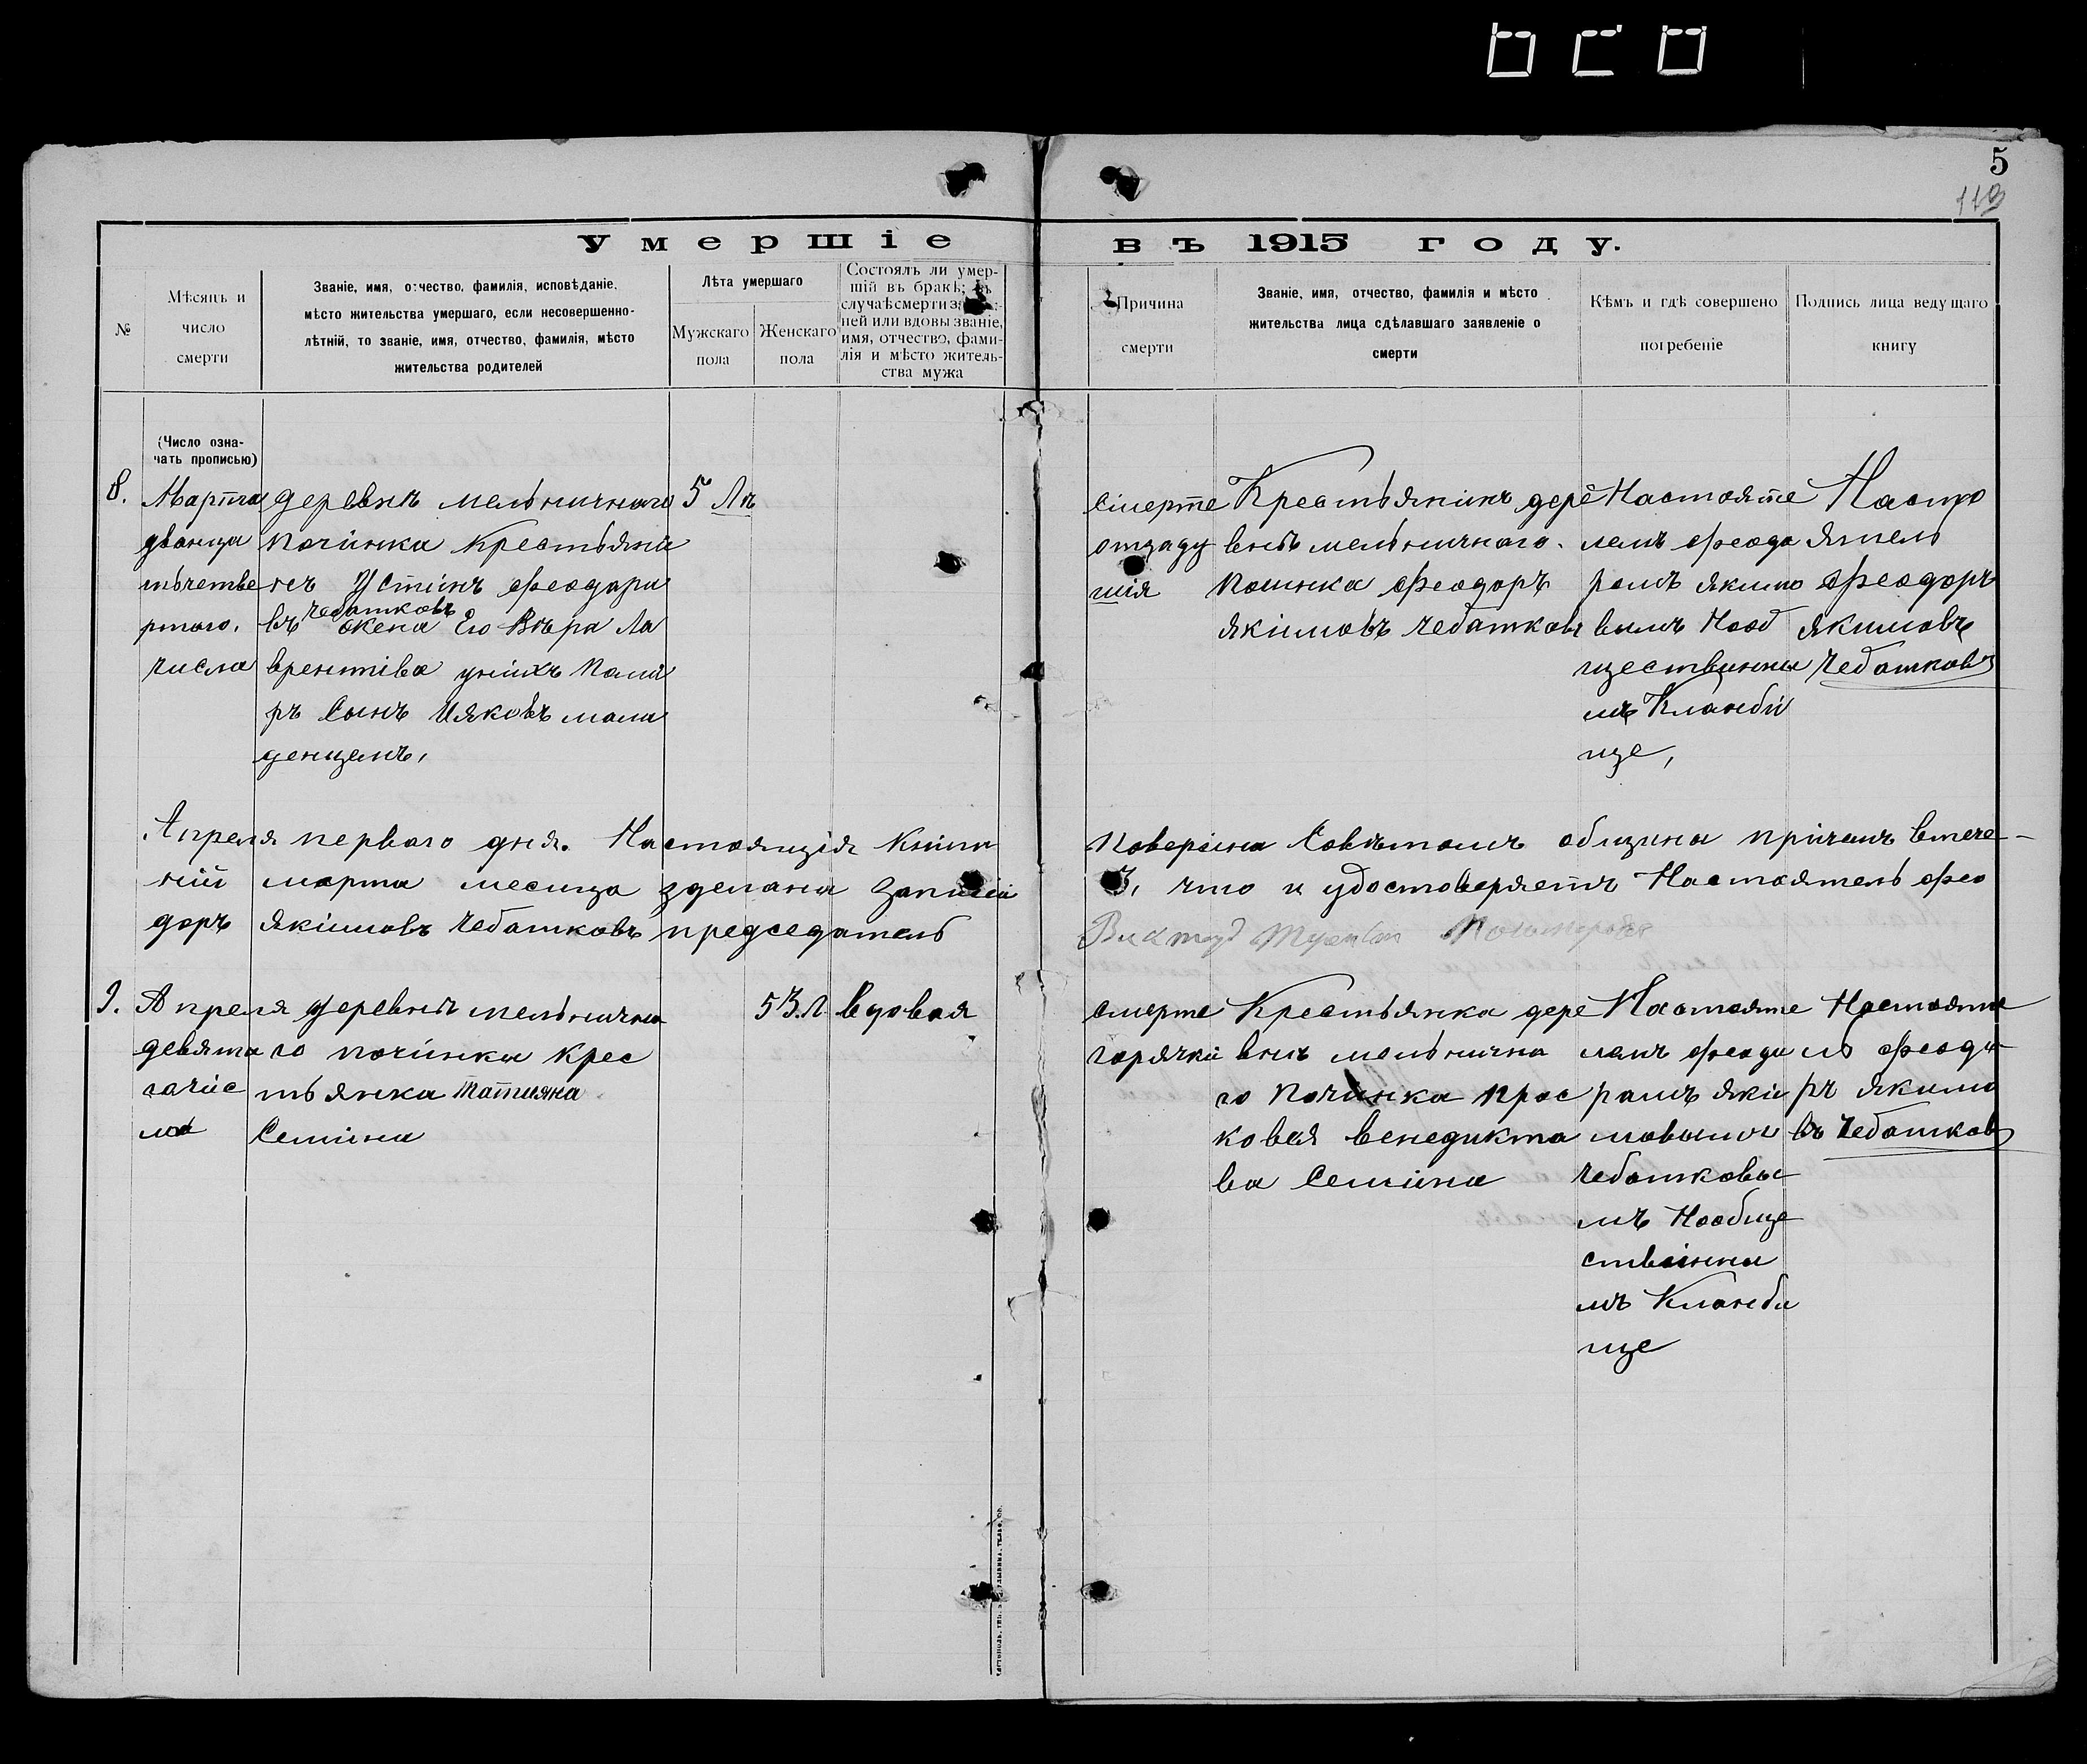 5
113
Умершіе въ 1915 году.
№
Мѣсяцъ и
число
смерти
Званіе, имя, отчество, фамилія, исповѣданіе,
мѣсто жительства умершаго, если несовершенно-
лѣтній, то званіе, имя, отчество, фамилія, мѣсто
жительства родителей
Лѣта умершаго
Мужскаго
пола
Женскаго
пола
Состоялъ ли умер-
шій въ бракѣ; въ
случаѣ смерти
ней или вдовы званіе,
имя, отчество, фами-
лія и мѣсто житель-
ства мужа
Причина
смерти
Званіе, имя, отчество, фамилія и мѣсто
жительства лица сдѣлавшаго заявленіе о
смерти
Кѣмъ и гдѣ совершено
погребеніе
Подпись лица ведущаго
книгу
(Число озна-
чать прописью)
8.
Марта
дванца
тьчетве
ртого.
числа
деревнѣ мельничного
починка Крестьяни
нъ Устінъ феодоро
въ Чеботковъ жена Его Вѣра Ла
врентіва уніхъ Поми
ръ Сынъ Ияковъ мла
денцемъ,
5 Лѣ
смерте
отзаду
шія
Крестьянінъ дере
вни мельничного.
Починка феодоръ
якімовъ чеботковъ
Настояте
лемъ феодо
ромъ якимо
вымъ Нооб
щественны
мъ Кланбі
ще,
Насто
ятель
Феодоръ
якимовъ
Чеботковъ
Апреля первого дня. Настоящія Книги Поверіна Совѣтомъ общины причемъ втече-
ніи марта месяца зделана запісіи 3, что и удостоверяетъ Настоятель фео
доръ якімовъ чеботковъ председатель
9.
Апреля
девята
гочис
ла
деревнѣ мельнична
го починка Крес
тьянка Татияна
Семіна
53.Л.
вдовая
смерте
горячки
Крестьянка дере
внѣ мельнична
го Починка Прос
ковея венедикто
ва Семіна
Настояте
лемъ феодо
ромъ які
мовымъ
Чеботковы
мъ Нообще
ствінны
мъ Кланби
ще
Настояте
ль феодо
ръ якимо
въ Чеботковъ